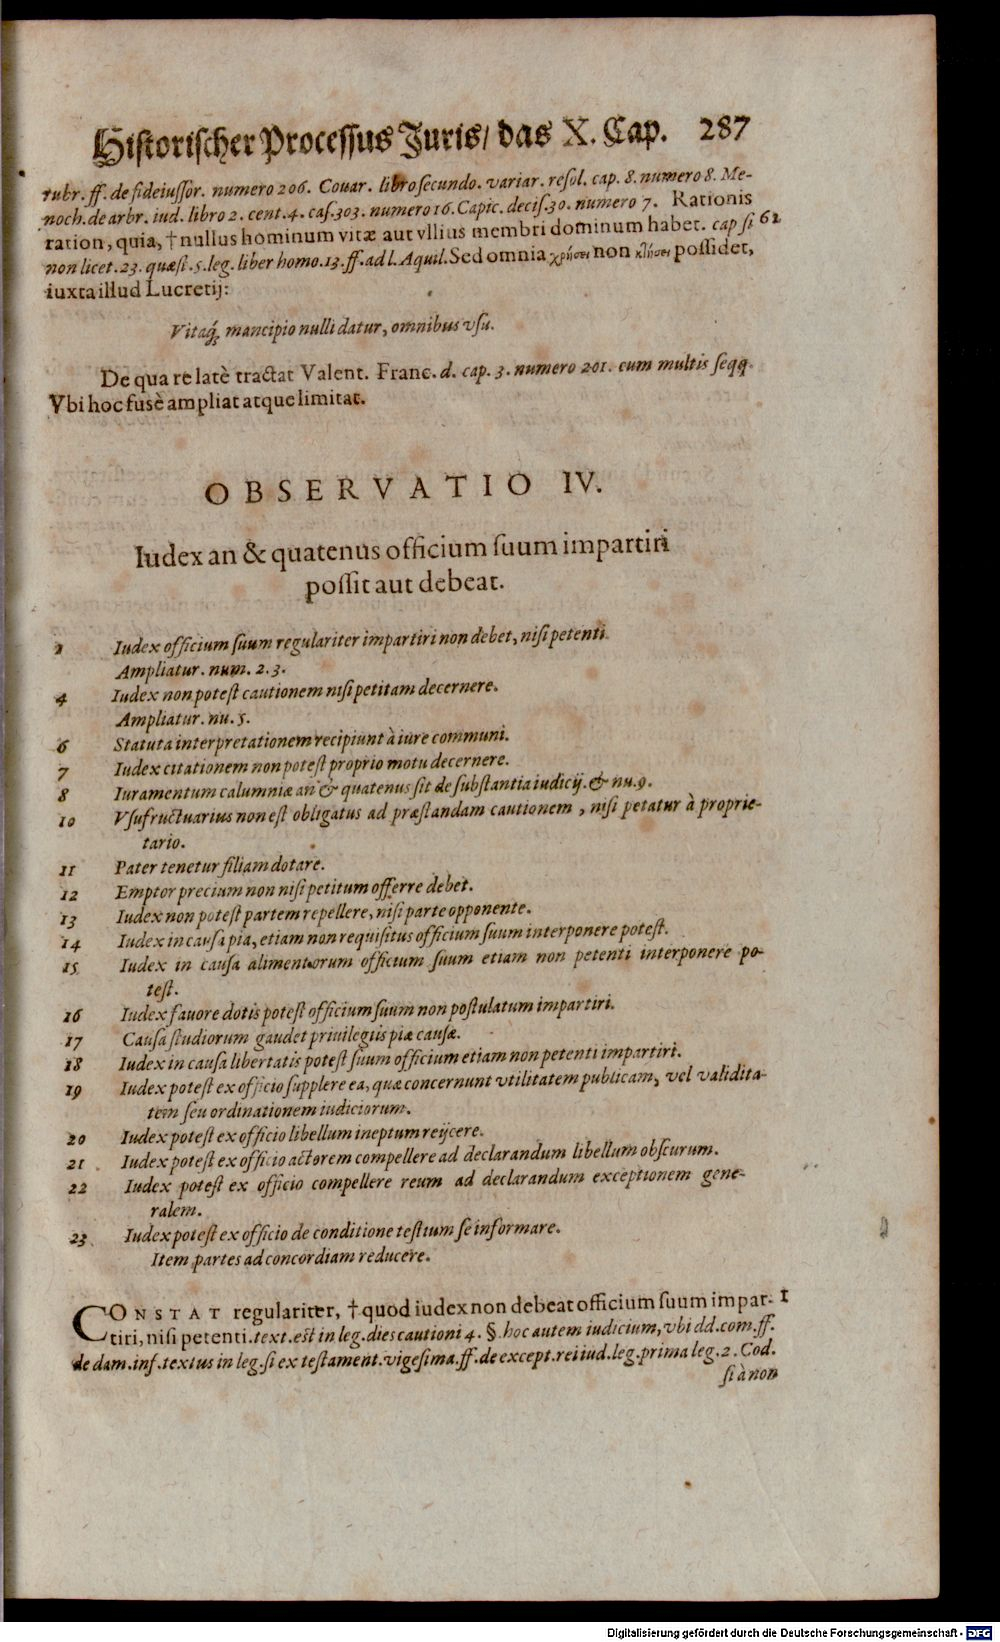 Historischer Processus Juris/ das X. Cap. 287
rubr. ff. de fideiussor. numero 206. Covar. libro secundo. variar. resol. cap. 8. numero 8. Me-
noch. de arbr. iud. libro 2. cent. 4. cas. 303. numero 16. Capic. decis. 30. numero 7. Rationis
ration, quia, † nullus hominum vitæ aut vllius membri dominum habet. cap si 62
non licet. 23. quæst. 5. leg. liber homo. 13. ff. ad l. Aquil. Sed omnia χρήσει non κλήσει possidet,
iuxta illud Lucretij:
Vitaq; mancipio nulli datur, omnibus vsu.
De qua re latè tractat Valent. Franc. d. cap. 3. numero 201. cum multis seqq.
Vbi hoc fusè ampliat atque limitat.
OBSERVATIO IV.
Iudex an & quatenus officium suum impartiri
possit aut debeat.
1 Iudex officium suum regulariter impartiri non debet, nisi petenti.
Ampliatur. num. 2. 3.
4 Iudex non potest cautionem nisi petitam decernere.
Ampliatur. nu. 5.
6 Statuta interpretationem recipiunt à iure communi.
7 Iudex citationem non potest proprio motu decernere.
8 Iuramentum calumniæ an & quatenus sit de substantia iudicij. & nu. 9.
10 Vsufructuarius non est obligatus ad præstandam cautionem, nisi petatur à proprie-
tario.
11 Pater tenetur filiam dotare.
12 Emptor precium non nisi petitum offerre debet.
13 Iudex non potest partem repellere, nisi parte opponente.
14 Iudex in causa pia, etiam non requisitus officium suum interponere potest.
15 Iudex in causa alimentorum officium suum etiam non petenti interponere po-
test.
16 Iudex favore dotis potest officium suum non postulatum impartiri.
17 Causa studiorum gaudet privilegiis piæ causæ.
18 Iudex in causa libertatis potest suum officium etiam non petenti impartiri.
19 Iudex potest ex officio supplere ea, quæ concernunt vtilitatem publicam, vel validita-
tem seu ordinationem iudiciorum.
20 Iudex potest ex officio libellum ineptum reijcere.
21 Iudex potest ex officio actorem compellere ad declarandum libellum obscurum.
22 Iudex potest ex officio compellere reum ad declarandum exceptionem gene-
ralem.
23 Iudex potest ex officio de conditione testium se informare.
Item partes ad concordiam reducere.
CONSTAT regulariter, † quod iudex non debeat officium suum impar- 1
tiri, nisi petenti. text. est in leg. dies cautioni 4. §. hoc autem iudicium, vbi dd. com. ff.
de dam. inf. textus in leg. si ex testament. vigesima. ff. de except. rei iud. leg. prima leg. 2. Cod.
si à non
Digitalisierung gefördert durch die Deutsche Forschungsgemeinschaft - DFG